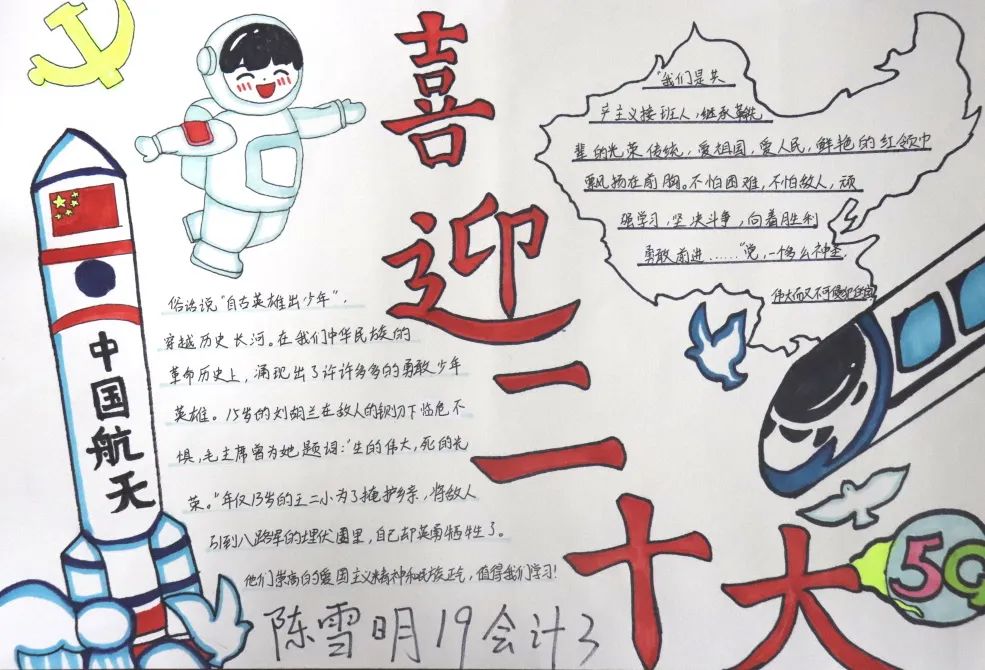 喜迎二十大
"我们是共
产主义接班人,继承革命先
辈的光荣传统,爱祖国,爱人民,鲜艳的红领巾
飘扬在前胸。不怕困难,不怕敌人,顽
强学习,坚决斗争,向着胜利
勇敢前进……"党,一个多么神圣,
伟大而又不可侵犯的
中国航天
俗话说"自古英雄出少年",
穿越历史长河。在我们中华民族的
革命历史上,涌现出了许许多多的勇敢少年
英雄。15岁的刘胡兰在敌人的铡刀下临危不
惧,毛主席曾为她题词:"生的伟大,死的光
荣。"年仅13岁的王二小为了掩护乡亲,将敌人
引到八路军的埋伏圈里,自己却英勇牺牲了。
他们崇高的爱国主义精神和民族正气,值得我们学习!
陈雪明19会计3
5G